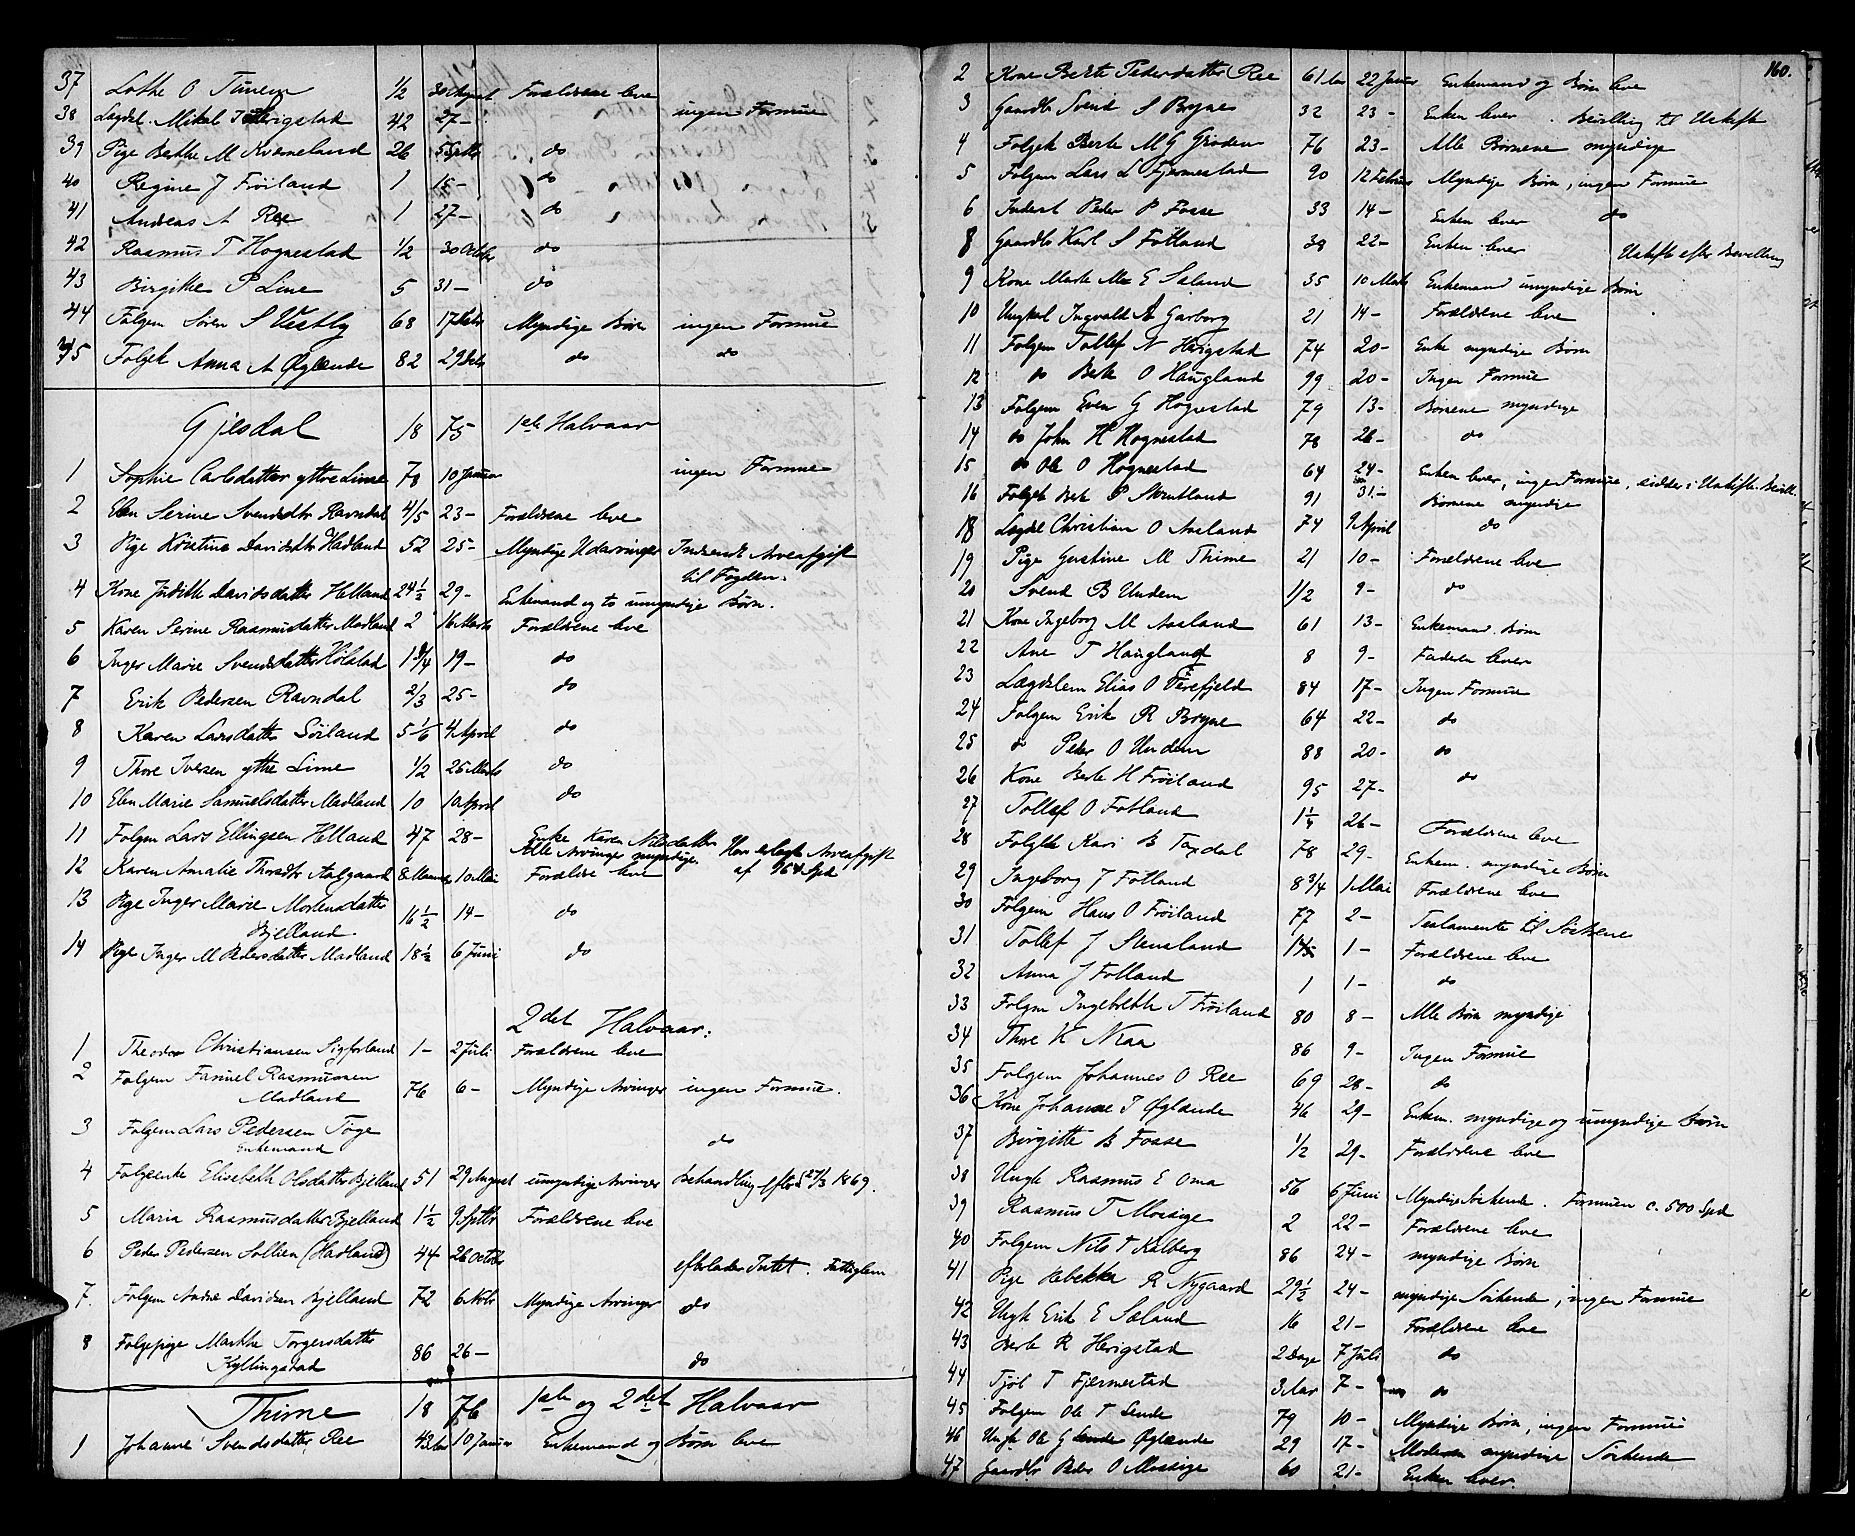 37 Lothe O Tunem 1/2 30 August Forældrene leve
38 Lægdsl. Mikal T Herigstad 42 27 - ingen Formue
39 Pige Berthe M Kverneland 26 5 Septbr do
40 Regine J Frøiland 1 15 - do
41 Andreas A Ree 1 27 - do
42 Rasmus T Hognestad 1/2 30 October do
43 Birgitte P Line 5 31 - do
44 Folgem Sören S Vestly 68 17 Myndige Børn ingen Formue
45 Folgek Anna A Øglænde 82 29 do do
Gjesdal 18 75 1ste Halvaar
1 Sophie Carlsdatter yttre Lime 78 10 Januar ingen Formue
2 Elen Serine Svendsdtr Ravndal 4/5 23 - Forældrene leve
3 Pige Kristine Davidsdtr Hadland 52 25 - Myndige Udarvinger Indsendt Arveafgift
til Fogden.
4 Kone Judithe Davidsdatter Helland 24 1/2 29 - Enkemand og to umyndige Børn.
5 Karen Serine Rasmusdatter Madland 2 16 Marts Forældrene leve
6 Inger Marie Svendsdatter Hølstad 1 3/4 19 - do
7 Erik Pedersen Ravndal 2/3 25 - do
8 Karen Larsdatter Søiland 5 1/6 4 April do
9 Thore Iversen ytre Lime 1/2 25 Marts do
10 Elen Marie Samuelsdatter Madland 10 10 April do
11 Folgem Lars Ellingsen Helland 47 28 - Enke Karen Nilsdatter
Alle Arvinger myndige. Har erlagt Arveafgift
af 964 Spd
12 Karen Amalie Thorsdtr Aalgaard 8 Maaned 10 Mai Forældre leve
13 Pige Inger Marie Mortensdatter
Bjelland. 16 1/2 14 - do
14 Pige Inger M Pedersdatter Madland 18 1/2 6 Juni do
2det Halvaar:
1 Theodor Christiansen Sigforland 1 - 2 Juli Forældrene leve
2 Folgem Faniel Rasmussen
Madland 76 6 - Myndige Arvinger ingen Formue.
3 Folgem Lars Pedersen Tøge
Enkemand do
4 Folgeenke Elisabeth Olsdatter Bjelland 51 29 August umyndige Arvinger Behandling efter L 27/3 1869.
5 Maria Rasmusdatter Bjelland 1 1/2 9 Septbr Forældrene leve
6 Peder Pedersen Sollien (Hadland) 44 26 October efterlader Intet. Fattiglem
7. Folgem Andre Davidsen Bjelland 72 6 Novbr Myndige Arvinger do
8 Folgepige Marthe Torgersdatter
Kyllingstad 86 26 - do
Thime 18 76 1ste og 2det Halvaar
1 Johanne Svendsdatter Ree 43 Aar 10 Januar Enkemand og Børn leve
160.
2 Kone Berte Pedersdatter Ree 61 Aar 22 Januar Enkemand og Børn leve
3 Gaardbr Svend S Bryne 32 23 - Enken lever . Bevilling til Uskifte
4 Folgek Berte M G Gruden 76 23 - Alle Børnene myndige
5 Folgem Lars L Fjermestad 90 12 Februar Myndige Børn, ingen Formue
6 Inderst Peder P Fosse 33 14 - Enken lever do
8 Gaardbr Karl S Fotland 38 22 - Enken lever Uskifte efter Bevilling
9 Kone Marte M E Saland 35 10 Marts Enkemand umyndige Børn
10 Ungkarl Ingvald A Garborg 21 14 - Forældrene leve
11 Folgem Tollef N Herigstad 74 20 - Enke myndige Børn
12 do Berte O Haugland 99 20 - Ingen Formue
13 Folgem Even G Hognestad 79 13 - Børnene myndige
14 do John H Hognestad 78 26 - do
15 do Ole O Hognestad 64 24 - Enken lever, ingen Formue, sidder i Uskifte. Bevill.
16 Folgek Berte P Skrudland 91 31 - Børnene myndige
18 Lægdsl Christian O Aasland 74 9 April do
19 Pige Gurstine M Thime 21 10 - Forældrene leve
20 Svend B Undem 1/2 9 - do
21 Kone Ingeborg M Aasland 61 13 - Enkemand. Børn
22 Ane T Haugland 8 9 - Faderen lever
23 Lægdslem Elias O Terefjeld 84 17 - Ingen Formue
24 Folgem Erik R Bryne 64 22 - do
25 do Peder O Undem 88 20 - do
26 Kone Berte H Frøiland 95 27 - do
27 Tollef O Fotland 1 1/4 26 - Forældrene leve
28 Folgek Kari B Taxdal 78 29 - Enkem. myndige Børn
29 Ingeborg J Fotland 8 3/4 1 Mai Forældrene leve
30 Folgem Hans O Frøiland 77 2 - Testamente til Sødskene
31 Tollef J Stensland 1 4/5 1 - Forældrene leve
32 Anna J Folland 1 1 - do
33 Folgem Ingebrekt T Frøiland 80 8 - Alle Børn myndige
34 Thore K Njaa 86 9 - Ingen Formue
35 Folgem Johannes O Ree 69 28 - do
36 Kone Johanne J Øglænde 46 29 - Enkem. myndige og umyndige Børn
37 Birgitte B Fosse 1/2 29 - Forældrene leve
38 Ungk Rasmus E Oma 56 6 Juni Myndige Sødskende. Formuen c. 500 Spd
39 Rasmus T Mossige 2 22 - Forældrene leve
40 Folgem Nils T Kalberg 86 24 - myndige Børn
41 Pige Rebekka R Nygaard 29 1/2 24 - myndige Sødskende, ingen Formue
42 Ungk Erik E Sæland 16 21 - Forældrene leve
43 Berte R Herigstad 2 Dage 7 Juli do
44 Tjøl T Fjermestad 3 Aar 7 - do
45 Folgem Ole T Lende 79 10 - Myndige Børn, ingen Formue
46 Ungk Ole G Øglænde 29 17 - Moderen myndige Sødskende
47 Gaardbr Peder O Mossige 60 21 - Enken lever.